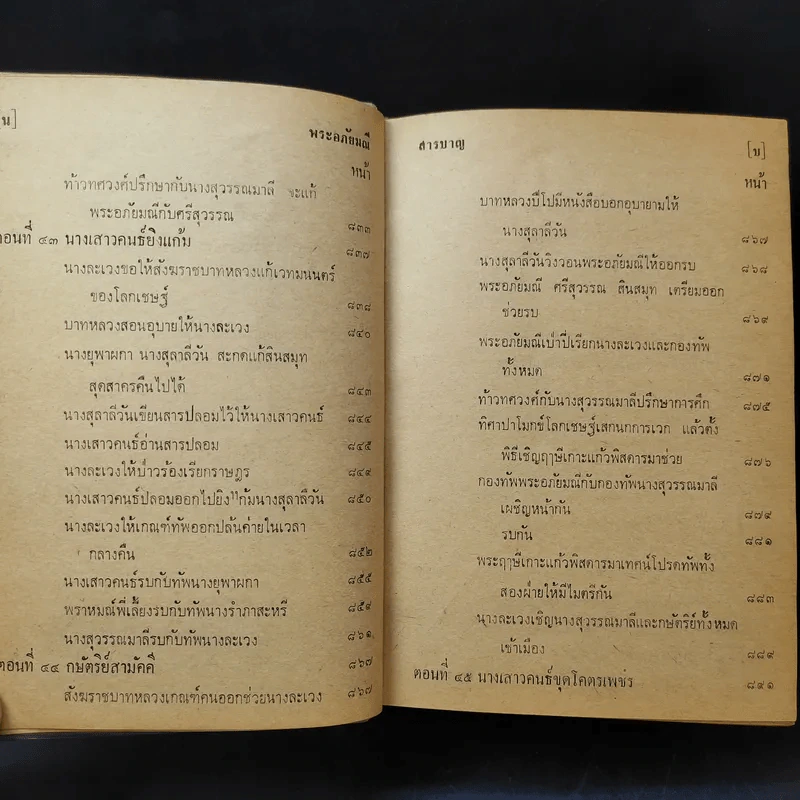 [น]
พระอภัยมณี
หน้า
ท้าวทศวงศ์ปรึกษากับนางสุวรรณมาลี จะแก้
พระอภัยมณีกับศรีสุวรรณ ๘๓๓
ตอนที่ ๔๓ นางเสาวคนธ์ยิงแก้ม ๘๓๗
นางละเวงขอให้สังฆราชบาทหลวงแก้เวทมนตร์
ของโลกเชษฐ์ ๘๓๘
บาทหลวงสอนอุบายให้นางละเวง ๘๔๐
นางยุพาผกา นางสุลาลีวัน สะกดแก้สินสมุท
สุดสาครคืนไปได้ ๘๔๓
นางสุลาลีวันเขียนสารปลอมไว้ให้นางเสาวคนธ์ ๘๔๔
นางเสาวคนธ์อ่านสารปลอม ๘๔๕
นางละเวงให้บ่าวร้องเรียกราษฎร ๘๔๙
นางเสาวคนธ์ปลอมออกไปยิงแก้มนางสุลาลีวัน ๘๕๐
นางละเวงให้เกณฑ์ทัพออกปล้นค่ายในเวลา
กลางคืน ๘๕๒
นางเสาวคนธ์รบกับทัพนางยุพาผกา ๘๕๕
พราหมณ์พี่เลี้ยงรบกับทัพนางรำภาสะหรี ๘๕๙
นางสุวรรณมาลีรบกับทัพนางละเวง ๘๖๑
ตอนที่ ๔๔ กษัตริย์สามัคคี ๘๖๗
สังฆราชบาทหลวงเกณฑ์คนออกช่วยนางละเวง ๘๖๗
สารบาญ
[บ]
หน้า
บาทหลวงปีโปมีหนังสือบอกอุบายามให้
นางสุลาลีวัน ๘๖๗
นางสุลาลีวันวิงวอนพระอภัยมณีให้ออกรบ ๘๖๘
พระอภัยมณี ศรีสุวรรณ สินสมุท เตรียมออก
ช่วยรบ ๘๖๙
พระอภัยมณีเป่าปี่เรียกนางละเวงและกองทัพ
ทั้งหมด ๘๗๑
ท้าวทศวงศ์กับนางสุวรรณมาลีปรึกษาการศึก ๘๗๕
ทิศาปาโมกข์โลกเชษฐ์เสกนกการเวก แล้วตั้ง
พิธีเชิญฤๅษีเกาะแก้วพิสดารมาช่วย ๘๗๖
กองทัพพระอภัยมณีกับกองทัพนางสุวรรณมาลี
เผชิญหน้ากัน ๘๗๙
รบกัน ๘๘๑
พระฤๅษีเกาะแก้วพิสดารมาเทศน์โปรดทัพทั้ง
สองฝ่ายให้มีไมตรีกัน ๘๘๓
นางละเวงเชิญนางสุวรรณมาลีและกษัตริย์ทั้งหมด
เข้าเมือง ๘๘๙
ตอนที่ ๔๕ นางเสาวคนธ์ขุดโคตรเพชร ๘๙๑